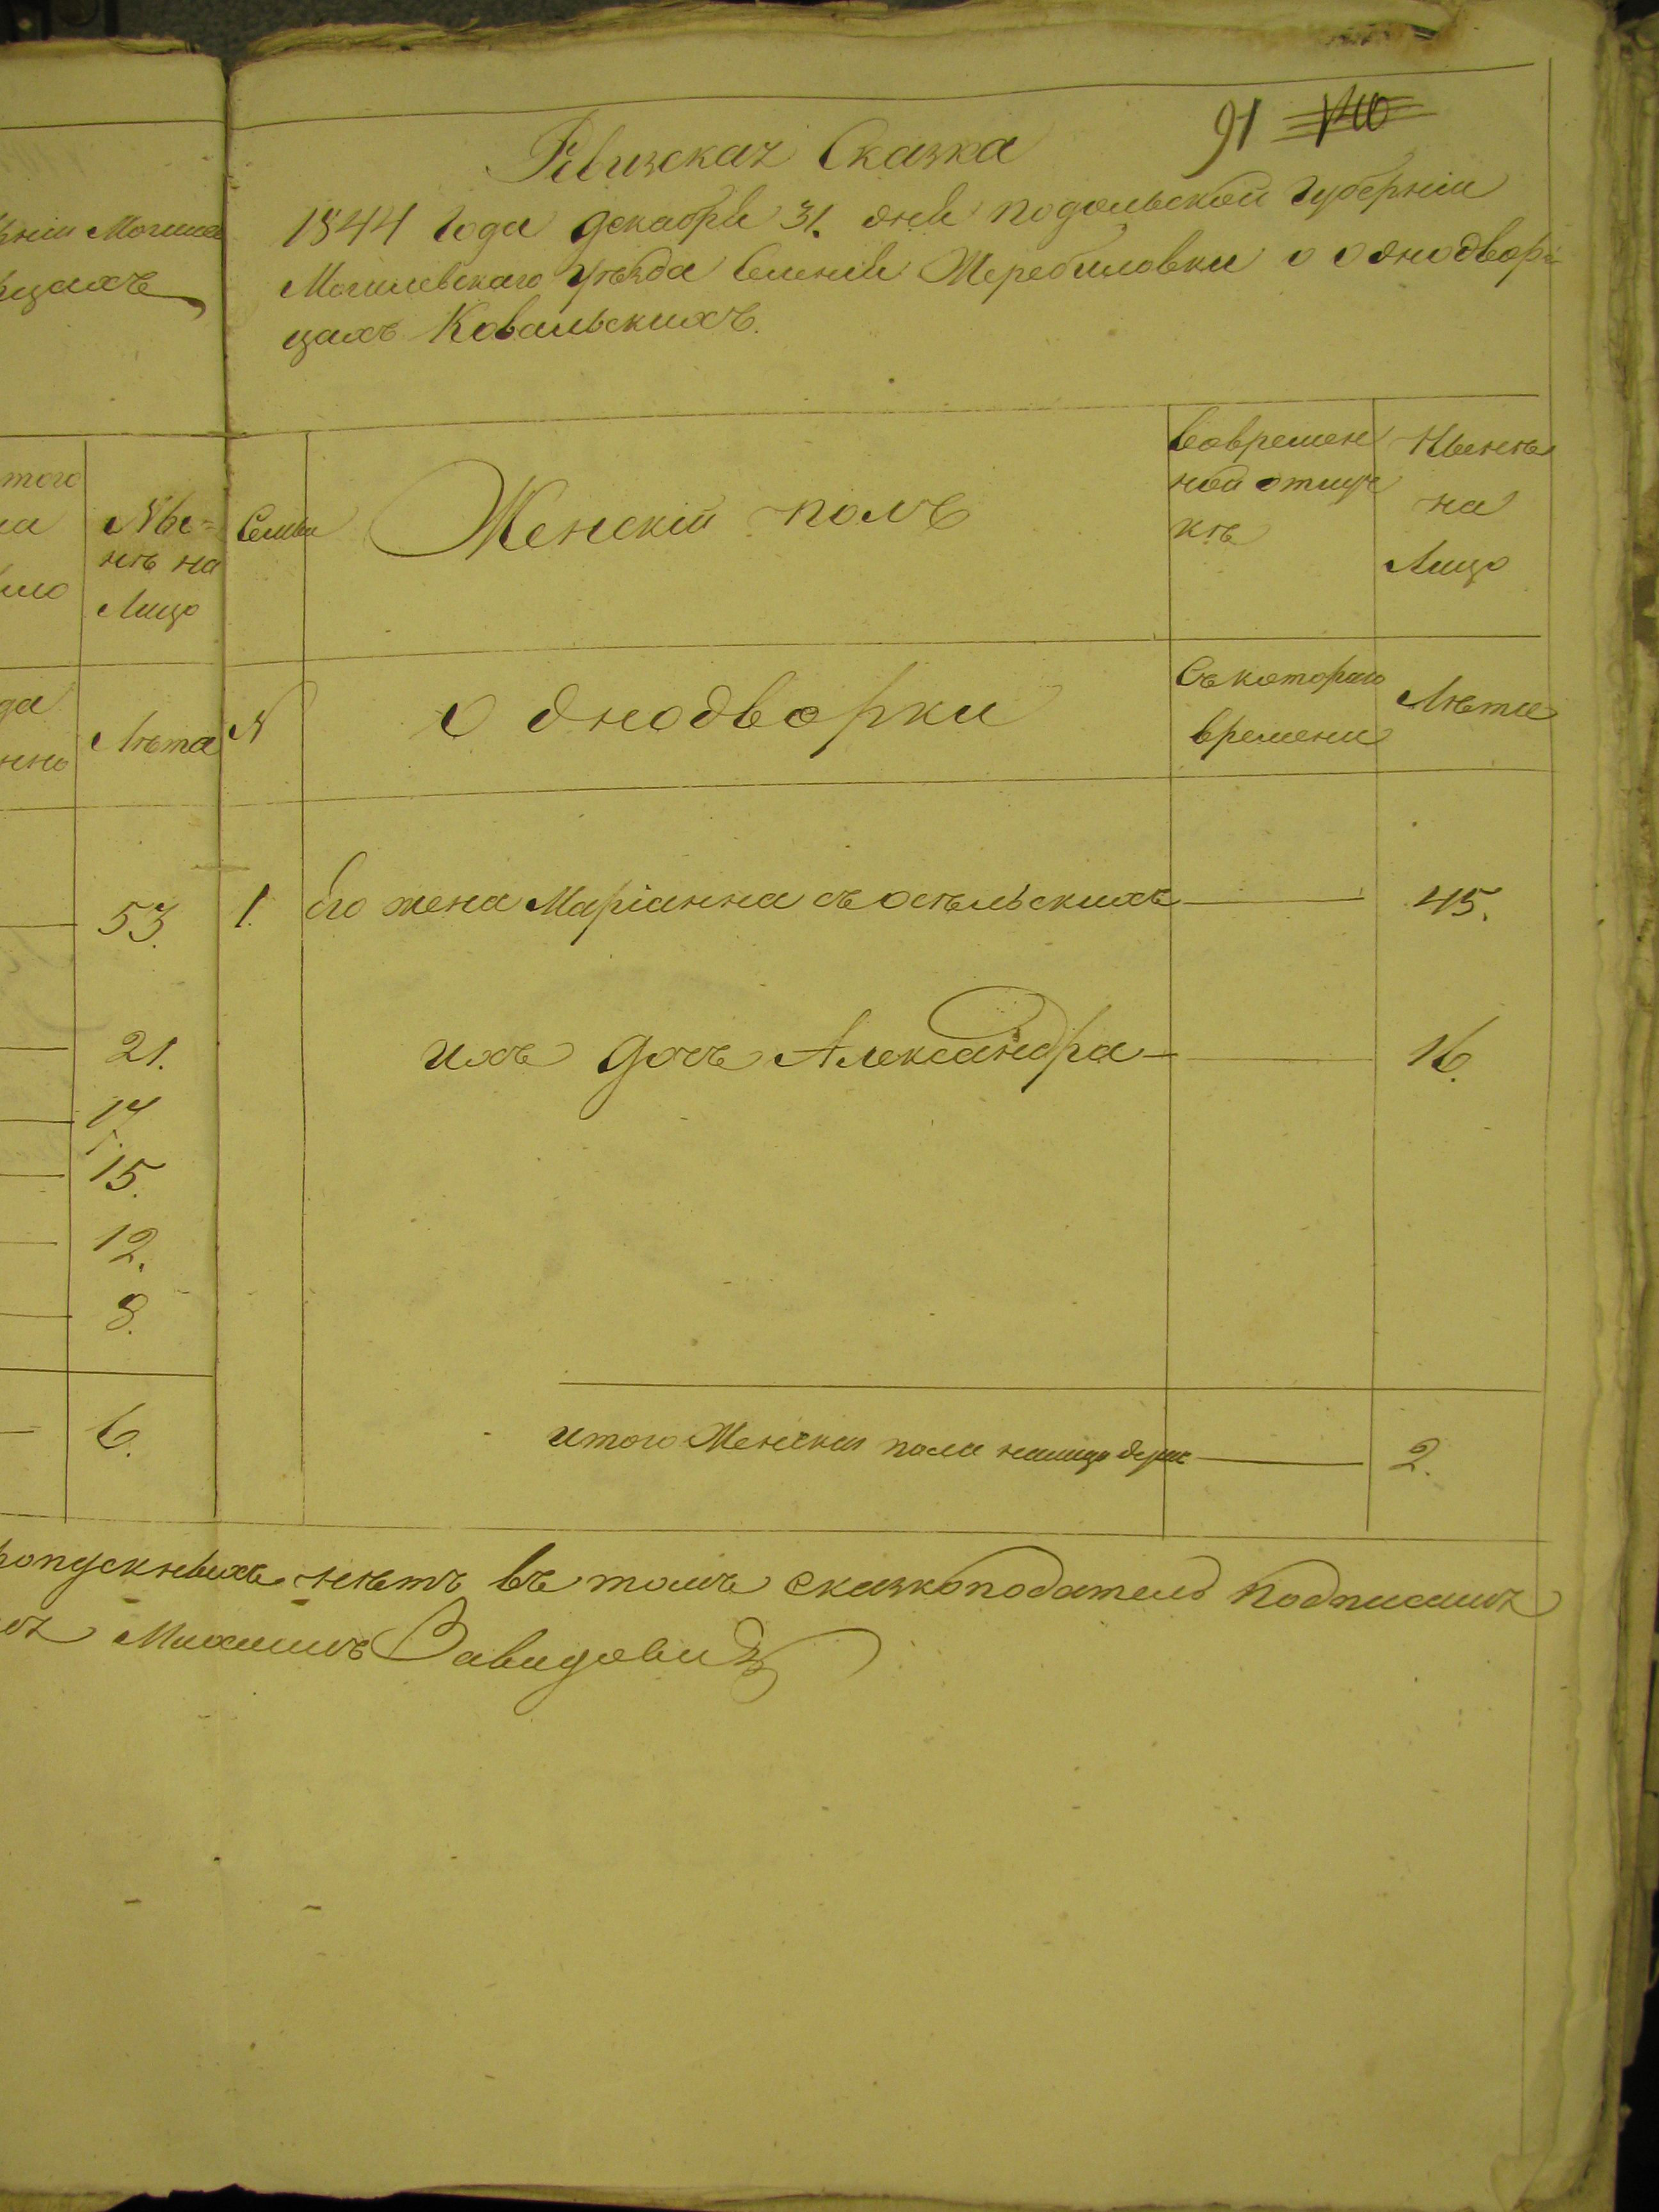 91 140
Ревизская Сказка
1844 Года Декабря 31. дня подольской Губерніи
Могилевскаго уѣзда Селенія Жеребиловки о однодвор-
цахъ Ковальскихъ.
рніи Могилев
рцахъ
того
на
Ны=
нѣ на
Лицо
Лѣта
Семьи
Женскій полъ
Вовремен
ной отлуч
кѣ
Нынѣ
на
Лицо
N
Однодворки
Съ котораго
времени
Лѣта
53.
1.
Его жена Маріанна
45.
21.
ихъ дочь Александра
16.
17.
15.
12.
8.
6.
итого Женска пола налицо душъ
2.
ропускныхъ нѣтъ въ томъ сказкоподатель подписалъ
Михаилъ Завидовичъ